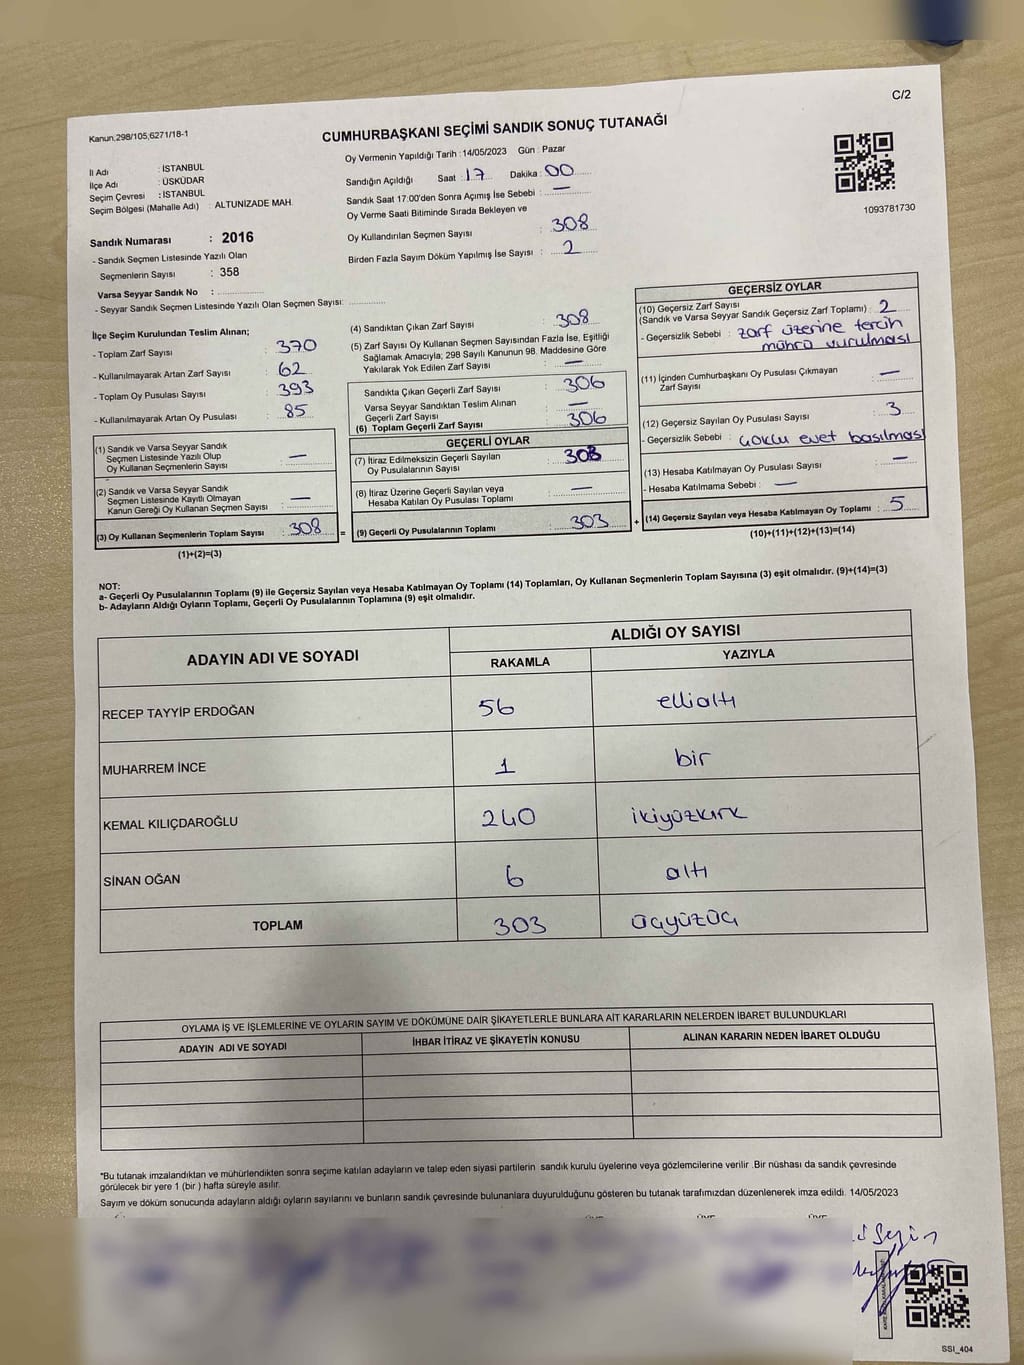 C/2
Kanun:298/105,6271/18-1
CUMHURBAŞKANI SEÇİMİ SANDIK SONUÇ TUTANAĞI
İl Adı : İSTANBUL
İlçe Adı : ÜSKÜDAR
Seçim Çevresi : İSTANBUL
Seçim Bölgesi (Mahalle Adı) : ALTUNİZADE MAH.
Oy Vermenin Yapıldığı Tarih : 14/05/2023 Gün : Pazar
Sandığın Açıldığı Saat : 17 Dakika : 00
Sandık Saat 17:00'den Sonra Açımış İse Sebebi : —
Oy Verme Saati Bitiminde Sırada Bekleyen ve
Oy Kullandırılan Seçmen Sayısı : 308
Birden Fazla Sayım Döküm Yapılmış İse Sayısı : 2
1093781730
Sandık Numarası : 2016
- Sandık Seçmen Listesinde Yazılı Olan
Seçmenlerin Sayısı : 358
Varsa Seyyar Sandık No :
- Seyyar Sandık Seçmen Listesinde Yazılı Olan Seçmen Sayısı:
İlçe Seçim Kurulundan Teslim Alınan;
- Toplam Zarf Sayısı : 370
- Kullanılmayarak Artan Zarf Sayısı : 62
- Toplam Oy Pusulası Sayısı : 393
- Kullanılmayarak Artan Oy Pusulası : 85
(1) Sandık ve Varsa Seyyar Sandık
Seçmen Listesinde Yazılı Olup
Oy Kullanan Seçmenlerin Sayısı : —
(2) Sandık ve Varsa Seyyar Sandık
Seçmen Listesinde Kayıtlı Olmayan
Kanun Gereği Oy Kullanan Seçmen Sayısı : —
(3) Oy Kullanan Seçmenlerin Toplam Sayısı : 308 =
(1)+(2)=(3)
(4) Sandıktan Çıkan Zarf Sayısı : 308
(5) Zarf Sayısı Oy Kullanan Seçmen Sayısından Fazla İse, Eşitliği
Sağlamak Amacıyla; 298 Sayılı Kanunun 98. Maddesine Göre
Yakılarak Yok Edilen Zarf Sayısı : —
Sandıkta Çıkan Geçerli Zarf Sayısı : 306
Varsa Seyyar Sandıktan Teslim Alınan
Geçerli Zarf Sayısı : —
(6) Toplam Geçerli Zarf Sayısı : 306
GEÇERLİ OYLAR
(7) İtiraz Edilmeksizin Geçerli Sayılan
Oy Pusulalarının Sayısı : 303
(8) İtiraz Üzerine Geçerli Sayılan veya
Hesaba Katılan Oy Pusulası Toplamı : —
(9) Geçerli Oy Pusulalarının Toplamı : 303 +
GEÇERSİZ OYLAR
(10) Geçersiz Zarf Sayısı
(Sandık ve Varsa Seyyar Sandık Geçersiz Zarf Toplamı) : 2
- Geçersizlik Sebebi : zarf üzerine tercih
mührü vurulması
(11) İçinden Cumhurbaşkanı Oy Pusulası Çıkmayan
Zarf Sayısı : —
(12) Geçersiz Sayılan Oy Pusulası Sayısı : 3
- Geçersizlik Sebebi : çoklu evet basılması
(13) Hesaba Katılmayan Oy Pusulası Sayısı : —
- Hesaba Katılmama Sebebi : —
(14) Geçersiz Sayılan veya Hesaba Katılmayan Oy Toplamı : 5
(10)+(11)+(12)+(13)=(14)
NOT:
a- Geçerli Oy Pusulalarının Toplamı (9) ile Geçersiz Sayılan veya Hesaba Katılmayan Oy Toplamı (14) Toplamları, Oy Kullanan Seçmenlerin Toplam Sayısına (3) eşit olmalıdır. (9)+(14)=(3)
b- Adayların Aldığı Oyların Toplamı, Geçerli Oy Pusulalarının Toplamına (9) eşit olmalıdır.
ADAYIN ADI VE SOYADI ALDIĞI OY SAYISI
RAKAMLA YAZIYLA
RECEP TAYYİP ERDOĞAN 56 ellialtı
MUHARREM İNCE 1 bir
KEMAL KILIÇDAROĞLU 240 ikiyüzkırk
SİNAN OĞAN 6 altı
TOPLAM 303 üçyüzüç
OYLAMA İŞ VE İŞLEMLERİNE VE OYLARIN SAYIM VE DÖKÜMÜNE DAİR ŞİKAYETLERLE BUNLARA AİT KARARLARIN NELERDEN İBARET BULUNDUKLARI
ADAYIN ADI VE SOYADI İHBAR İTİRAZ VE ŞİKAYETİN KONUSU ALINAN KARARIN NEDEN İBARET OLDUĞU
*Bu tutanak imzalandıktan ve mühürlendikten sonra seçime katılan adayların ve talep eden siyasi partilerin sandık kurulu üyelerine veya gözlemcilerine verilir .Bir nüshası da sandık çevresinde
görülecek bir yere 1 (bir ) hafta süreyle asılır.
Sayım ve döküm sonucunda adayların aldığı oyların sayılarını ve bunların sandık çevresinde bulunanlara duyurulduğunu gösteren bu tutanak tarafımızdan düzenlenerek imza edildi. 14/05/2023
SSI_404